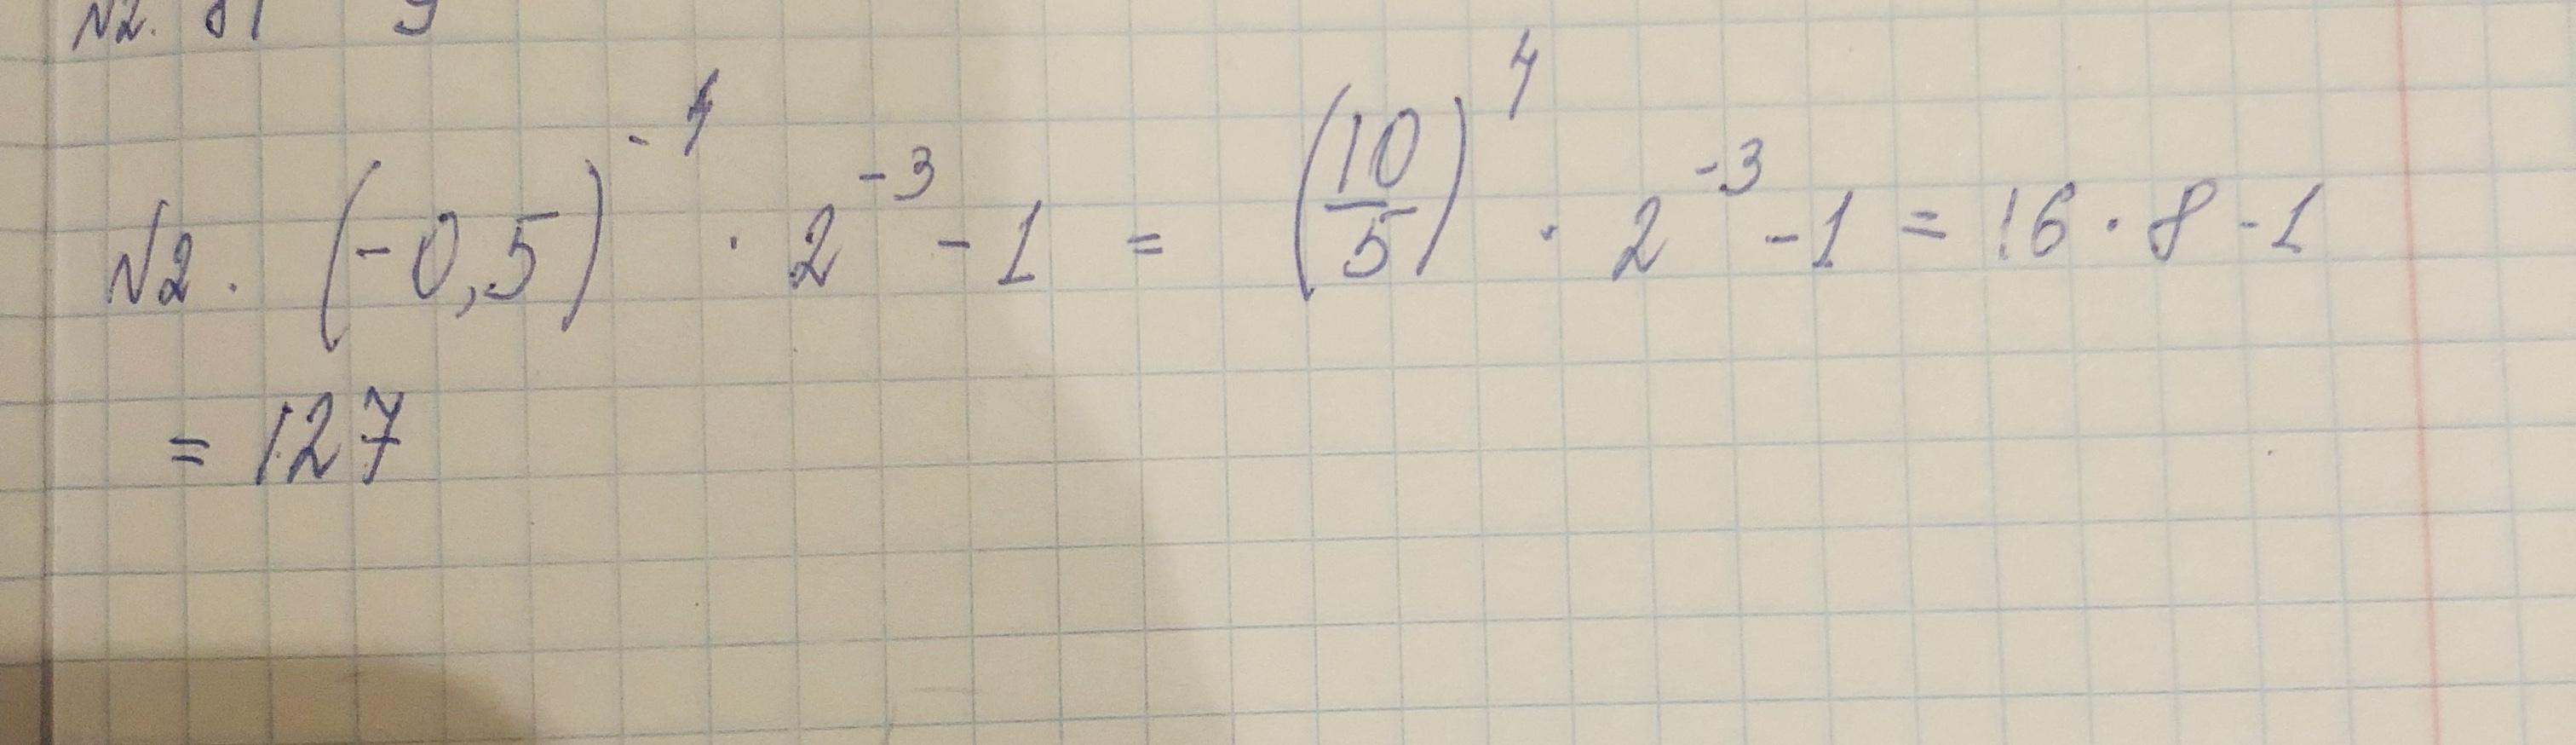 N2.
N2. (-0,5)^-4 · 2^-3 - 1 = (10/5)^4 · 2^-3 - 1 = 16 · 8 - 1
= 127